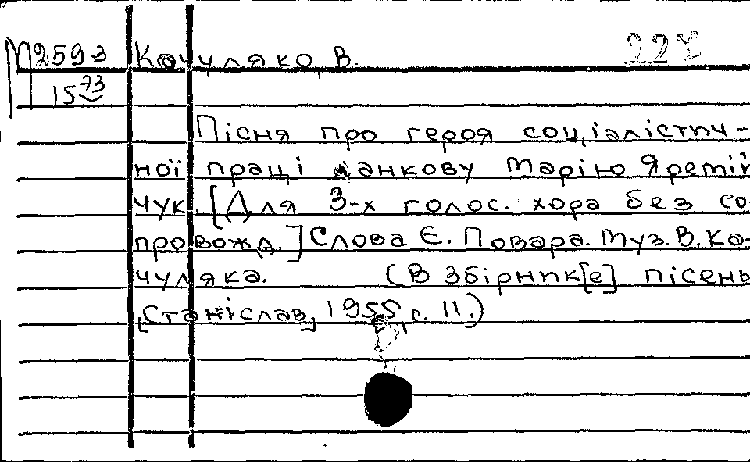 М2593 Кочуляко, В. 22X
15 73
Пісня про героя соціалістич-
ної праці ланкову Марію Яремій
чук. [Для 3-х голос. хора без со
провожд.] Слова Є. Повара. Муз. В. Ко-
чуляка. (В збірник[е] пісень
[Станіслав, 1955, с. 11.)